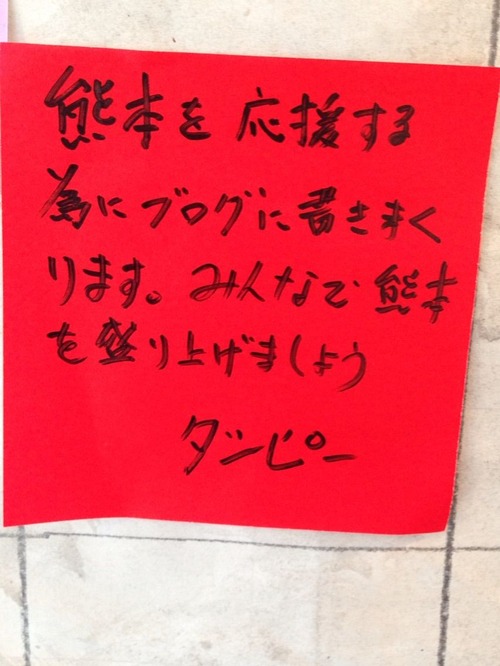 熊本を応援する
為にブログに書きまく
ります。みんなで熊本
を盛り上げましょう
ダーピー